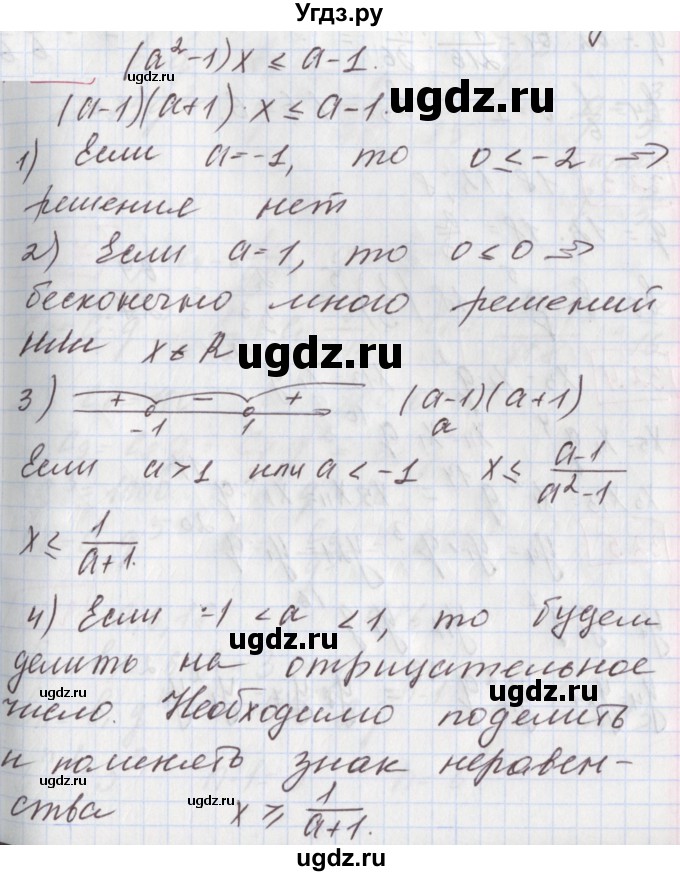 Угдз.ру
(a²-1)x ≤ a-1.
(a-1)(a+1)·x ≤ a-1.
1) Если a=-1, то 0≤-2 ⇒
решения нет
2) Если a=1, то 0≤0 ⇒
бесконечно много решений
или x∈R
3) + - + (a-1)(a+1)
-1 1 a
Если a>1 или a<-1 x≤ (a-1)/(a²-1)
x≤ 1/(a+1).
4) Если -1<a<1, то будем
делить на отрицательное
число. Необходимо поделить
и поменять знак неравен-
ства x ≥ 1/(a+1).
ugdz.ru
ugdz.ru
ugdz.ru
ugdz.ru
ugdz.ru
ugdz.ru
ugdz.ru
ugdz.ru
ugdz.ru
ugdz.ru
ugdz.ru